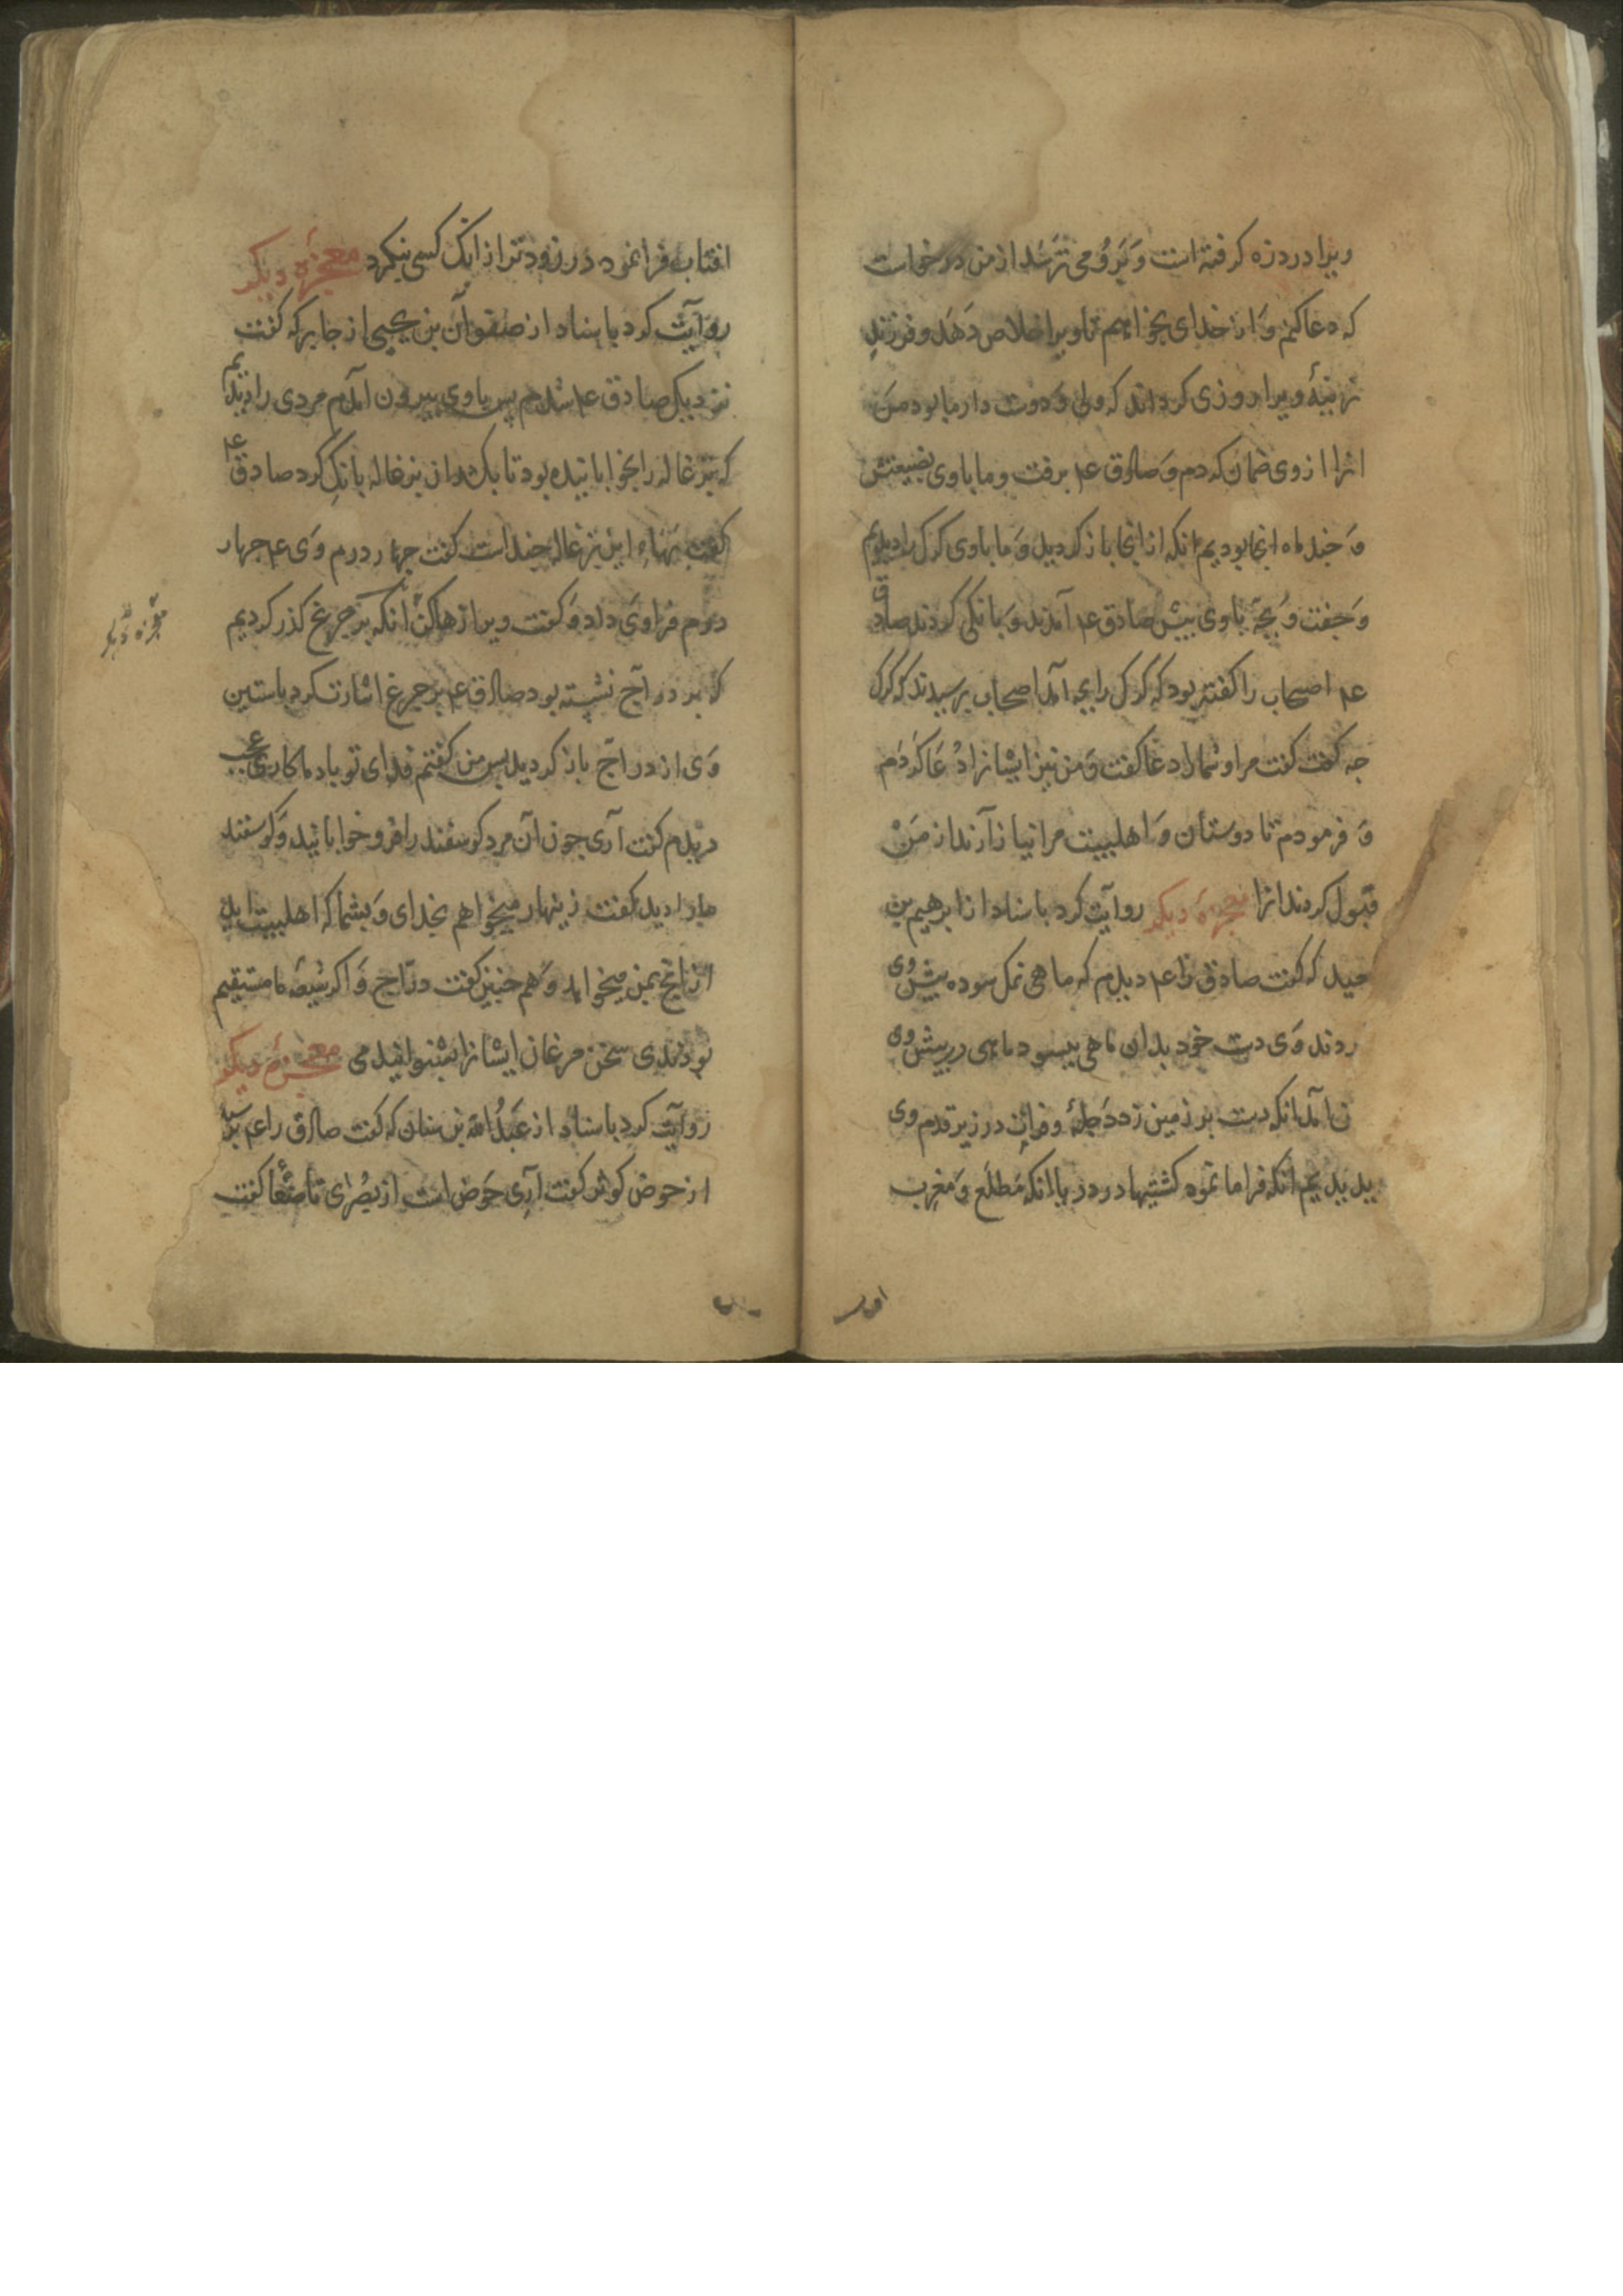 ویرا درد زه کرفته است وَ بَروُ می ترسَد از من درخواست
که دعا کنم وَ از خدای بخواهم تا ویرا خلاص دَهَد و فرزندِ
نرینهٔ ویرا روزی کرداند که ولی وَ دوست دار ما بود مَن
انرا از وی ضمان کردم وَ صادق ع م برفت و ما با وی بضیعتش
وَ جند ماه انجا بودیم انکه از انجا باز کردید وَ ما با وی کرک را دیدیم
وَ جفت وَ بچهٔ با وی پیش صادق ع م آمدند وَ بانکی کردند صادق
ع م اصحاب را کفته بود که کرک را بچه آمد اصحاب پرسیدند که کرک
جه کفت کفت مرا و شما را دعا کفت وَ من نیز ایشانرا دُعا کردم
وَ فرمودم تا دوستان وَ اهلبیت مرا نیازآرند از مَنْ
قبول کردند انرا معجزهٔ دیکر روایت کرد باسناد از ابرهیم بن
که کفت صادق را ع م دیدم که ماهی نمک سوده پیش وی
ردند وَی دست خود بدان ماهی بیسود ماهی در پیش وی
آمد انکه دست بر زمین زد دَجلهٔ و فرات در زیر قدم وی
انکه فرا ما نمود کشتیها در دریا انکه مَطلَع وَ مَغرِب
افتاب فرا نمود در زودتر از انک کسی بنکرد معجزهٔ دیکر
روایت کرد باسناد از صفوان بن یحیی از جابر که کفت
نزدیک صادق ع م شدم پس با وی بیرون آمدم مردی را دیدیم
که بزغاله را بخوابانیده بود تا بکشد ان بزغاله بانک کرد صادق ع م
کفت بهاءِ این بزغاله جندست کفت جهار درم وَی ع م جهار
درم فرا وَی داد وَ کفت ویرا رها کن انکه بر جرغ کذر کردیم
که بر دراج نشسته بود صادق ع م بر جرغ اشارت کرد باستین
وَی از دراج باز کردید پس من کفتم فدای تو باد ما کاری عجب
دیدم کفت آری جون ان مرد کوسفند را فرو خوابانید وَ کوسفند
مارا دید کفت زینهار میخواهم بخدای وَ بشما که اهلبیت اید
از انچ بمن میخواهد وَ هم جنین کفت دراج وَ اکر شیعهٔ ما مستقیم
بودندی سخن مرغان ایشانرا بشنوانیدمی معجزهٔ دیکر
روایت کرد باسناد از عَبدُالله بن سنان که کفت صادق را ع م پرسیدم
از حوض کوثر کفت آری حَوض است از بُصرای تا صنعا کفت
معجزهٔ دیکر